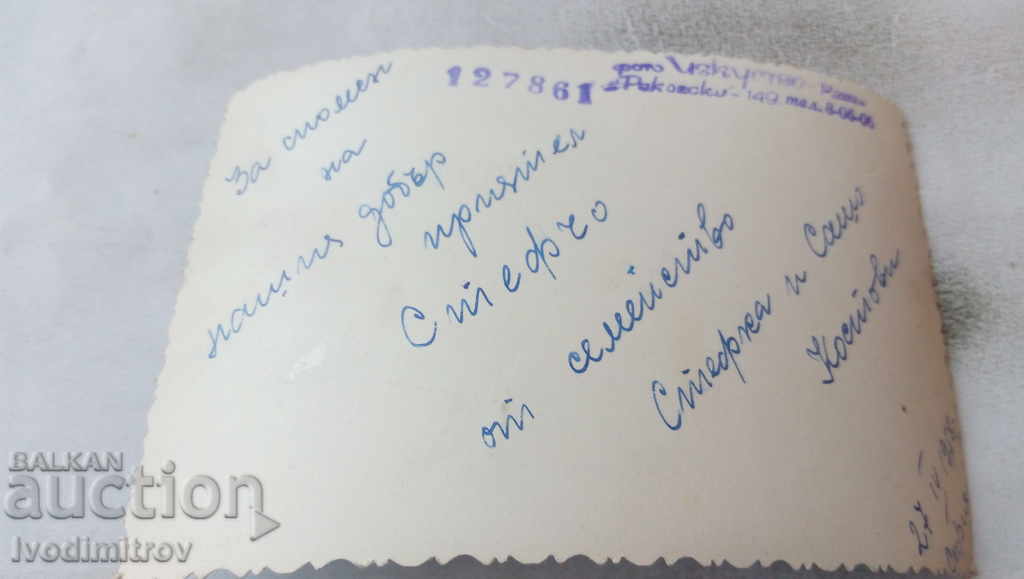 127861
фото Изкуство
Раковски - 149 тел. 8-06-06
За спомен
на
нашия добър
приятел
Стефчо
от семейство
Стефка и Сашо
Костови
BALKAN
auction
Ivodimitrov